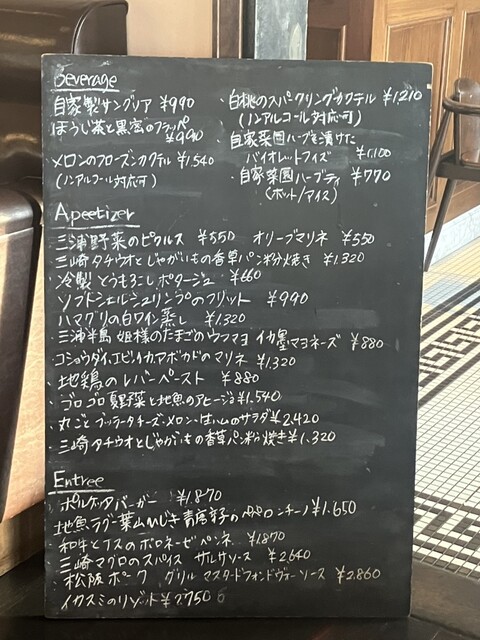 Beverage
自家製サングリア ¥990
ほうじ茶と黒蜜のフラッペ
¥990
メロンのフローズンカクテル ¥1,540
(ノンアルコール対応可)
・白桃のスパークリングカクテル ¥1,210
(ノンアルコール対応可)
・自家菜園ハーブを漬けた
バイオレットフィズ ¥1,100
・自家菜園ハーブティ ¥770
(ホット/アイス)
Apeetizer
三浦野菜のピクルス ¥550 オリーブマリネ ¥550
三崎タチウオとじゃがいもの香草パン粉焼き ¥1,320
・冷製とうもろこしポタージュ ¥660
ソフトシェルシュリンプのフリット ¥990
ハマグリの白ワイン蒸し ¥1,320
・三浦半島 姐様のたまごのウフマヨ イカ墨マヨネーズ ¥880
コショウダイ、エビ、イカ、アボカドのマリネ ¥1,320
・地鶏のレバーペースト ¥880
・ゴロゴロ夏野菜と地魚のアヒージョ ¥1,540
・丸ごとブッラータチーズ・メロン・生ハムのサラダ ¥2,420
・三崎タチウオとじゃがいもの香草パン粉焼き ¥1,320
Entree
ポルケッタバーガー ¥1,870
地魚ラグー葉山ひじき青唐辛子のペペロンチーノ ¥1,650
和牛とナスのボロネーゼペンネ ¥1870
三崎マグロのスパイス サルサソース ¥2,640
松阪ポーク グリル マスタードフォンドヴォーソース ¥2,860
イカスミのリゾット ¥2750